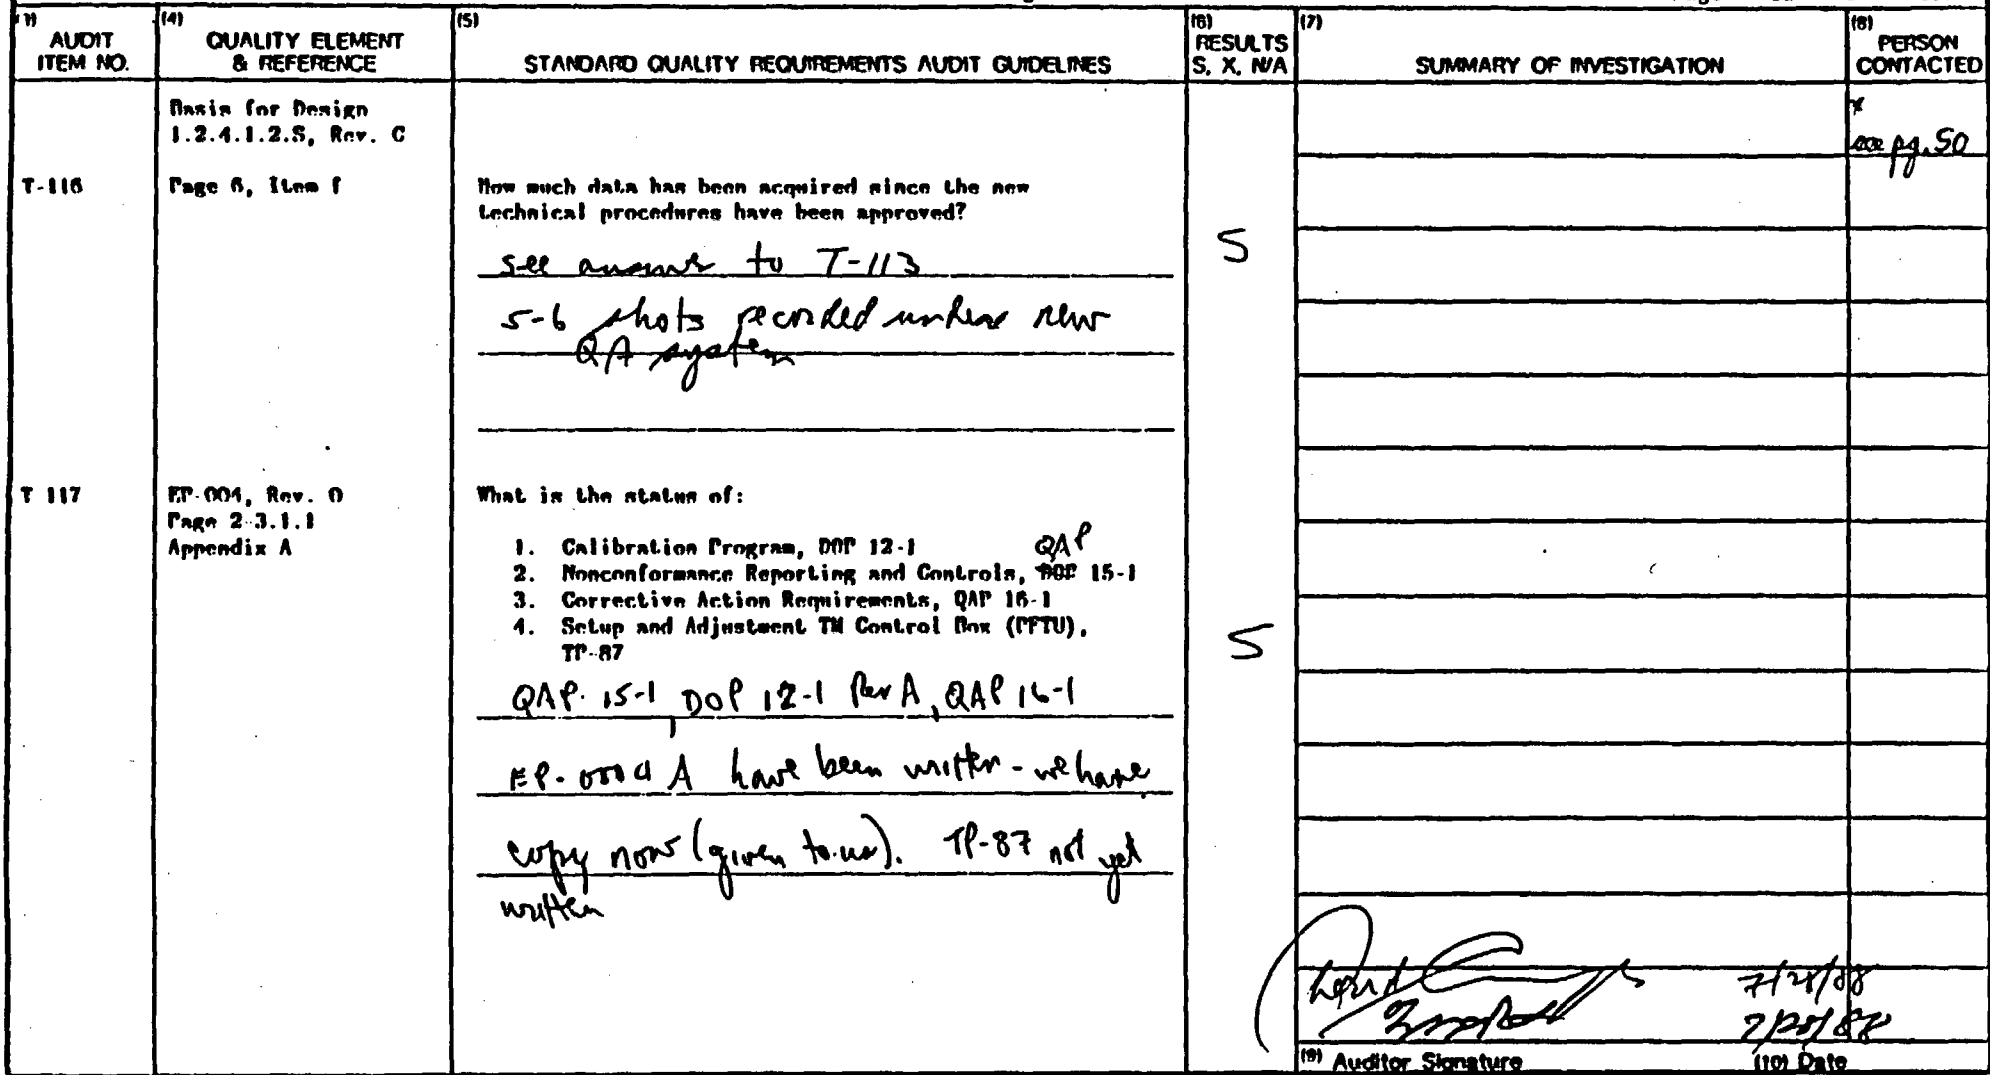 (4) (5) (6) (7) (8)
AUDIT ITEM NO. QUALITY ELEMENT & REFERENCE STANDARD QUALITY REQUIREMENTS AUDIT GUIDELINES RESULTS S, X, N/A SUMMARY OF INVESTIGATION PERSON CONTACTED
Basis for Design
1.2.4.1.2.S, Rev. C
x
see pg. 50
T-116 Page 6, Item f How much data has been acquired since the new
technical procedures have been approved?
S
see answer to T-113
5-6 shots recorded under new
QA system
T 117 EP-004, Rev. 0 What is the status of:
Page 2-3.1.1
Appendix A
1. Calibration Program, DOP 12-1
QAP
2. Nonconformance Reporting and Controls, DOP 15-1
3. Corrective Action Requirements, QAP 16-1
4. Setup and Adjustment TM Control Box (PFTU),
TP-87
S
QAP-15-1, DOP 12-1 Rev A, QAP 16-1
EP-0004 A have been written - we have
copy now (given to us). TP-87 not yet
written
(9) Auditor Signature (10) Date